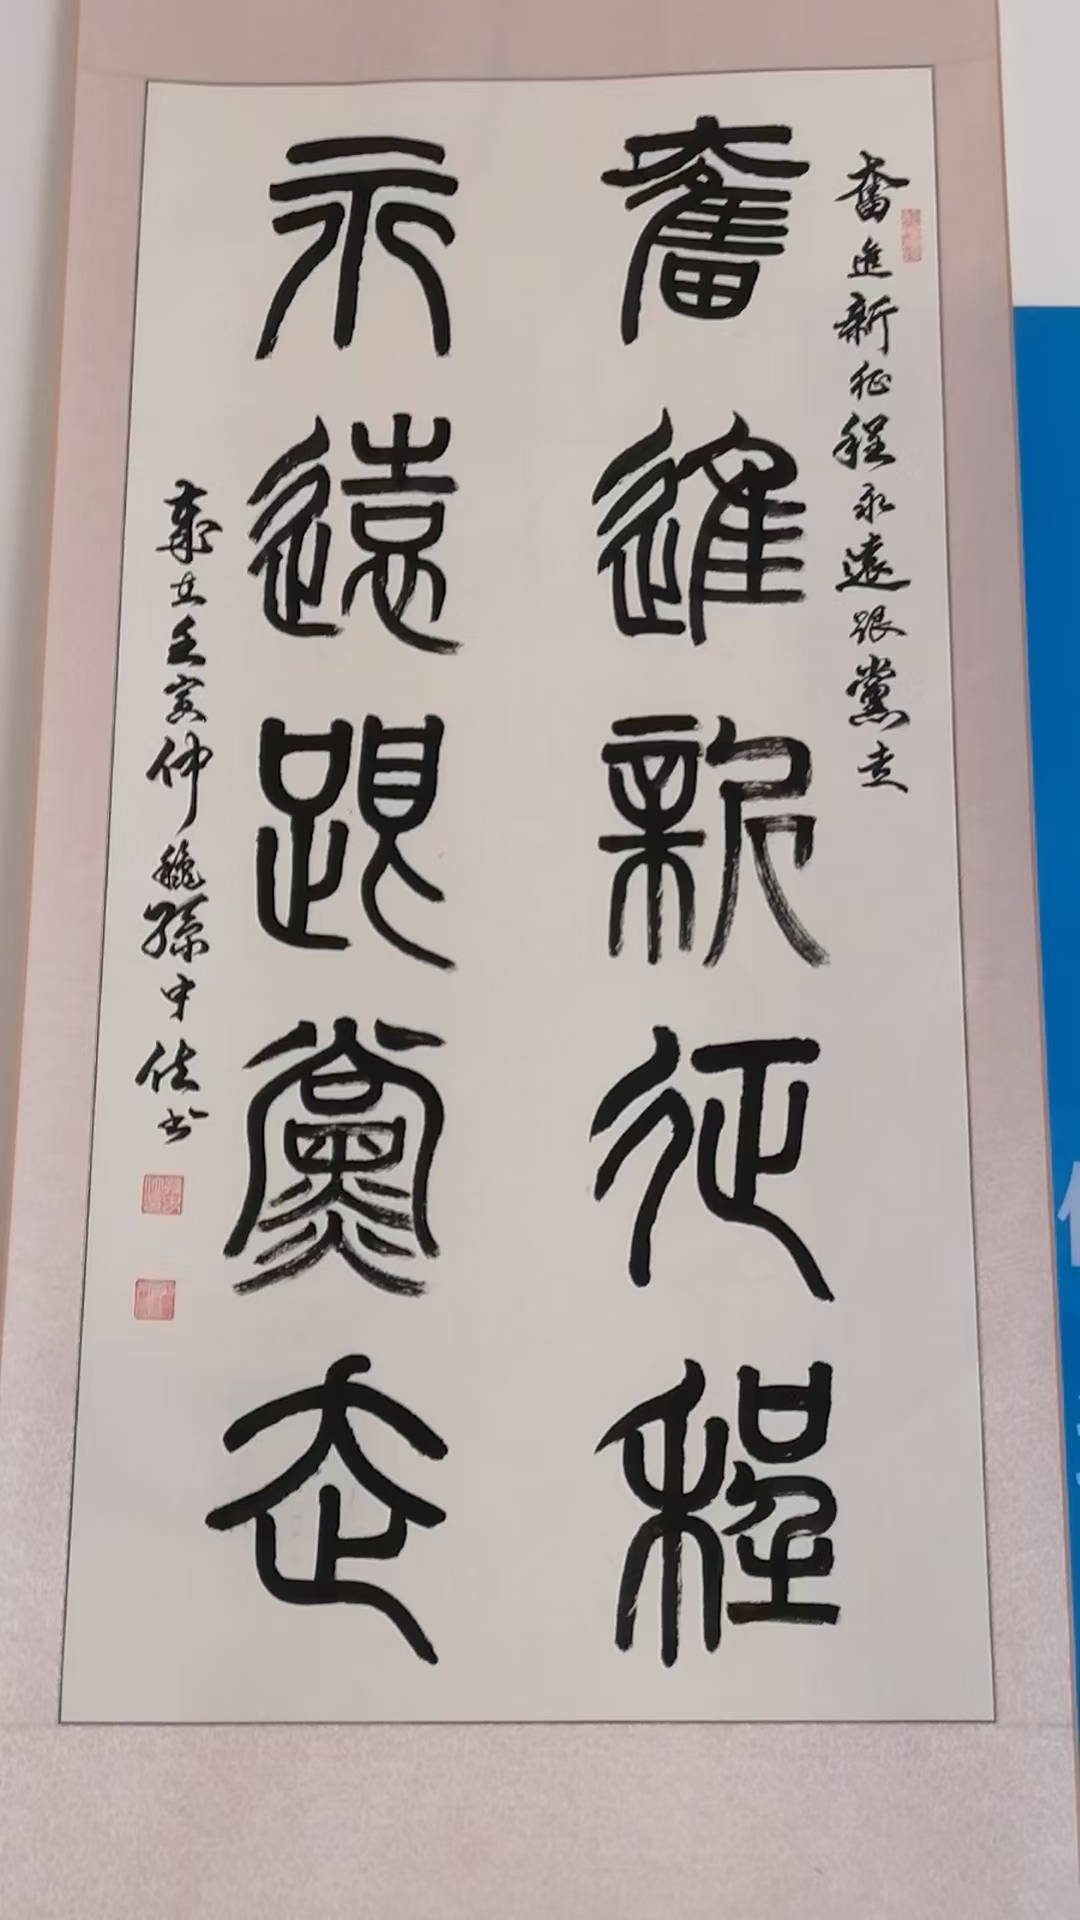 奮進新征程永遠跟黨走
奮進新征程
永遠跟黨走
歲在壬寅仲龝孫中书